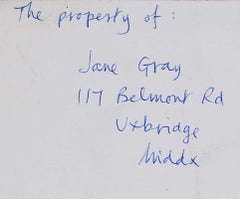 The property of :
Jane Gray
117 Belmont Rd
Uxbridge
Middx